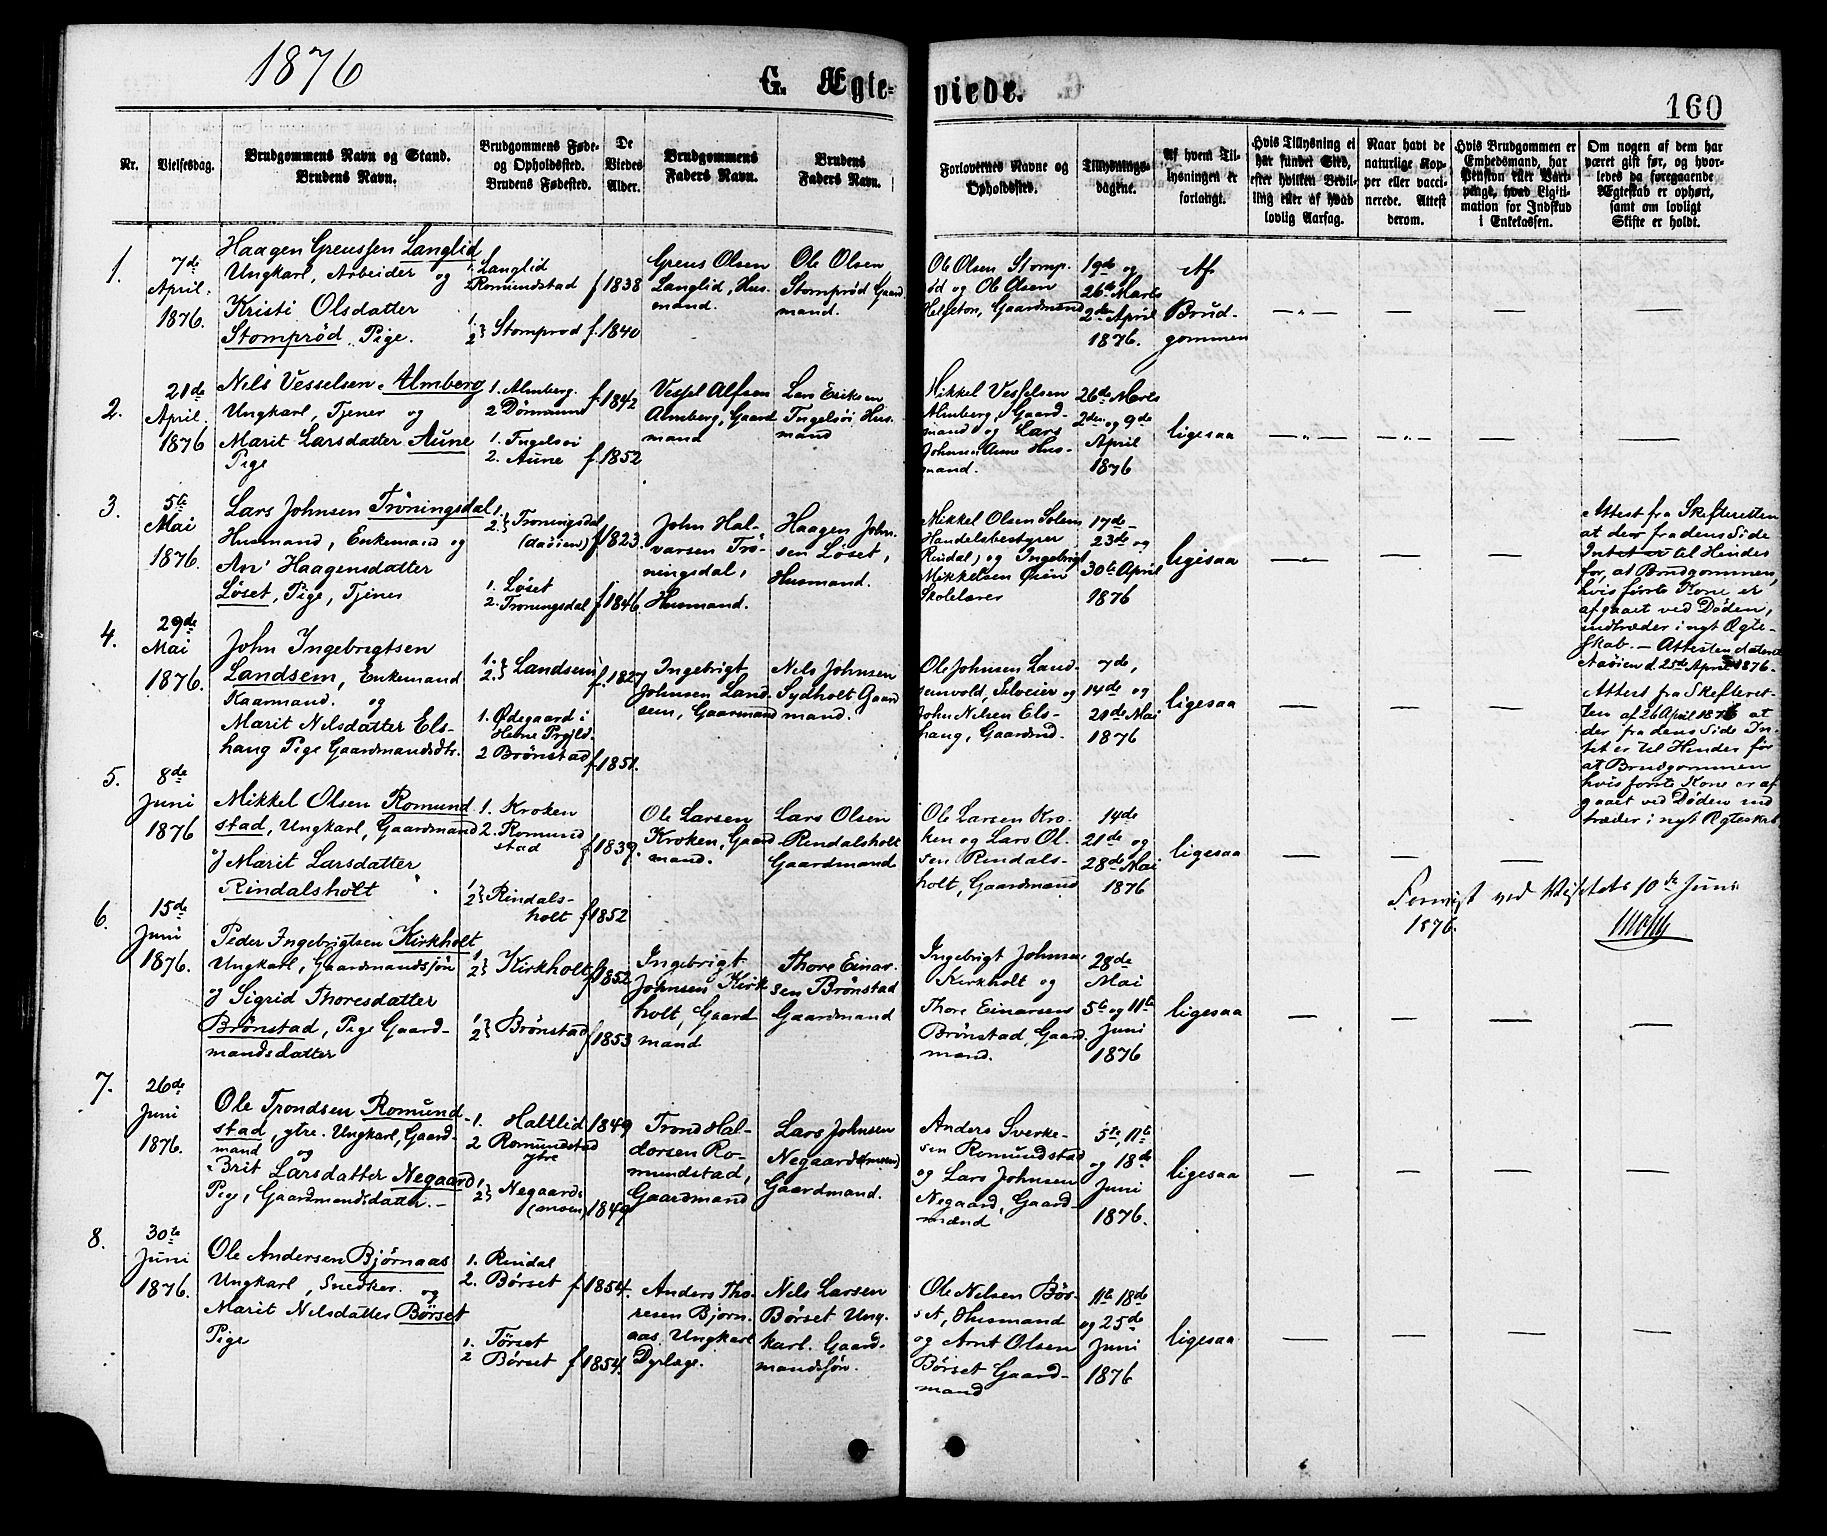 1876
G. Ægte-
viede.
160
Nr.
Vielsesdag.
Brudgommens Navn og Stand.
Brudens Navn.
Brudgommens Føde-
og Opholdssted.
Brudens Fødested.
De
Viedes
Alder.
Brudgommens
Faders Navn.
Brudens
Faders Navn.
Forlovernes Navne og
Opholdssted.
Tillysnings-
dagene.
Af hvem Til-
lysningen er
forlangt.
Hvis Tillysning ei
har fundet Sted,
efter hvilken Bevil-
ling eller af hvad
lovlig Aarsag.
Naar havt de
naturlige Kop-
per eller vacci-
nerede. Attest
derom.
Hvis Brudgommen er
Embedsmand, har
Pension eller Vart-
penge, hvad Ligiti-
mation for Indskud
i Enkekassen.
Om nogen af dem har
været gift før, og hvor-
ledes da foregaaende
Ægteskab er ophørt,
samt om lovligt
Skifte er holdt.
1.
7de
April.
1876.
Haagen Greussen Langlid
Ungkarl, Arbeider og
Kristi Olsdatter
Stomprød, Pige.
1. Langlid
2 Romundstad
1.
2} Stomprod
f 1838
f. 1840
Greus Olsen
Langlid, Hus-
mand.
Ole Olsen
Stomprød Gaard
mand.
Ole Olsen Stomp-
rød og Ole Olsen
Helgeton, Gaardmænd
19de og
26de Marts
2den April
1876.
Af
Brud-
gommen
2.
21de
April.
1876
Nils Vesselsen Almberg
Ungkarl, Tjener og
Marit Larsdatter Aune
Pige
1. Almberg.
2 Dønnum
1. Ingelsøi
2. Aune
f. 1842
f. 1852
Vessel Alfsen
Almberg, Gaard
mand
Lars Eriksen
Ingelsøi Hus-
mand
Mikkel Vesselsen
Almberg, Gaard-
mand og Lars
Johnsen Aune Hus-
mand.
26de Marts
2den og 9de
April
1876
ligesaa
3.
5te
Mai
1876.
Lars Johnsen Tröningsdal
Husmand, Enkemand og
Ari Haagensdatter
Løset, Pige, Tjener
1.
2.} Troningsdal
1. Løset
2. Troningsdal
f 1823.
f 1846.
John Hal-
varsen Trö-
ningsdal,
Husmand.
Haagen John-
sen Løset,
Husmand.
Mikkel Olsen Solem
Handelsbestyrer
Rindal, og Ingebrigt
Mikkelsen Øien
Skolelærer
17de
23de og
30te April
1876
ligesaa
Attest fra Skifteretten
at der fra dens Side
Intet er til Hinder
for, at Brudgommen,
hvis første Kone er
afgaaet ved Døden,
indtræder i nyt Ægte-
skab. – Attesten dateret
Aaøien d. 25de April 1876.
4.
29de
Mai
1876.
John Ingebrigtsen
Landsem, Enkemand
Kaarmand. og
Marit Nilsdatter Els-
haug Pige Gaardmandsdtr.
1.
2.} Landsem
1. Ødegaard i
Hevne Prgjld.
2 Brönstad
f. 1827
f. 1851.
Ingebrigt
Johnsen Land-
sem, Gaarmand
Nels Johnsen
Sydholt Gaard
mand.
Ole Johnsen Land-
semvold, Selveier og
John Nelsen Els-
haug, Gaardmd.
7de,
14de og
21de Mai
1876
ligesaa
Attest fra Skifteret-
ten af 26 April 1876 at
der fra dens Side In-
tet er til Hinder for
at Brudgommen
hvis forste Kone er af
gaaet ved Døden ind
træder i nyt Ægteskab
5.
8de
Juni
1876
Mikkel Olsen Romund
stad, Ungkarl, Gaardmand
og Marit Larsdatter
Rindalsholt
1. Kroken
2. Romund
stad
1
2} Rindals-
holt
f 1839.
f 1852
Ole Larsen
Kroken, Gaard
mand.
Lars Olsen
Rindalsholt
Gaardmand
Ole Larsen Kro-
ken og Lars Ol-
sen Rindals-
holt, Gaardmænd
14de
21de og
28de Mai
1876
ligesaa
ved 10de Juni
1876.
6.
15de
Juni
1876.
Peder Ingebrigtsen Kirkholt
Ungkarl, Gaardmandssøn
og Sigrid Thoresdatter
Brønstad, Pige Gaard-
mandsdatter
1
2} Kirkholt
1
2} Brønstad
f 1852
f 1853
Ingebrigt
Johnsen Kirk
holt, Gaard
mand
Thore Einar-
sen Brönstad
Gaardmand
Ingebrigt Johnsen
Kirkholt og
Thore Einarsens
Brönstad, Gaard-
mænd.
28de
Mai
5te og 11te
Juni
1876
ligesaa
7.
26de
Juni
1876.
Ole Trondsen Romund-
stad, ytre. Ungkarl, Gaard-
mand og
Brit Larsdatter Negaard
Pige, Gaardmandsdatter. –
1. Haltlid
2 Romundstad
ytre
1
2} Negaard
(moen)
1849
1849
Trond Hal-
dorsen Ro-
mundstad,
Gaardmand
Lars Johnsen
Negaard (moen)
Gaardmand.
Anders Sverke-
sen Romundstad
og Lars Johnsen
Negaard, Gaard-
mænd
5te, 11te
og 18de
Juni
1876.
ligesaa
8.
30te
Juni
1876.
Ole Andersen Bjørnaas
Ungkarl, Snedker. og
Marit Nilsdatter Börset
Pige
1. Rindal
2. Börset
1. Törset
2 Börset
f. 1854.
f 1854.
Anders Tho-
resen Bjorn-
aas, Ungkarl
Dyrlæge.
Nils Larsen
Börset Ung-
karl. Gaard-
mandssøn.
Ole Nelsen Bör-
set, Husmand
og Arnt Olsen
Börset Gaard-
mand
11te 18de
og 25de
Juni
1876
ligesaa